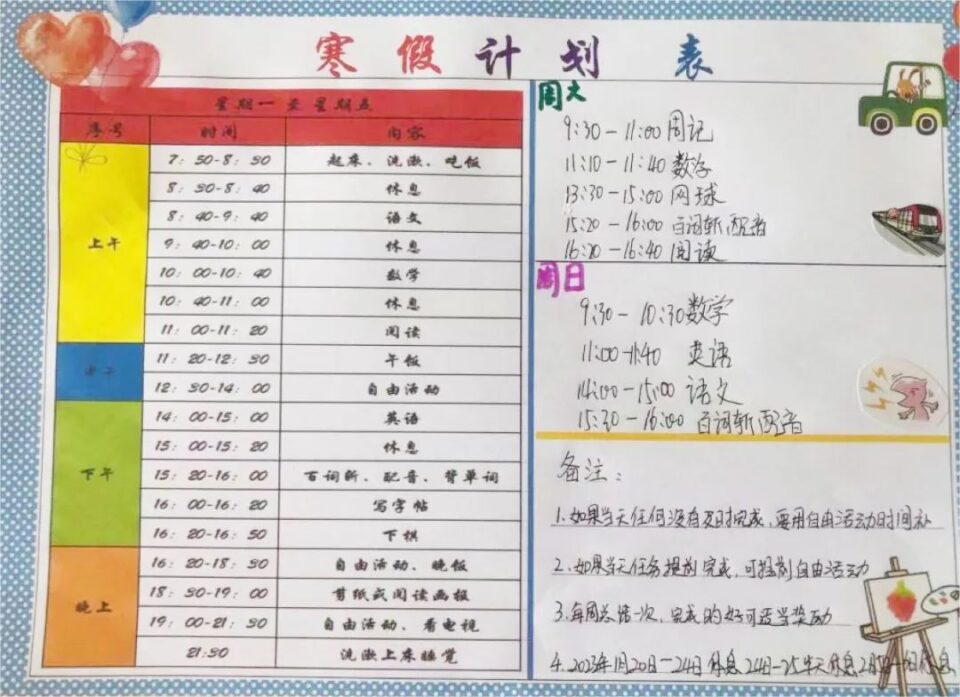 寒假计划表
星期一至星期五
序号 时间 内容
上午
7：50-8：30 起来、洗漱、吃饭
8：30-8：40 休息
8：40-9：40 语文
9：40-10：00 休息
10：00-10：40 数学
10：40-11：00 休息
11：00-11：20 阅读
中午
11：20-12：30 午饭
12：30-14：00 自由活动
下午
14：00-15：00 英语
15：00-15：20 休息
15：20-16：00 百词斩、配音、背单词
16：00-16：20 写字帖
16：20-16：50 下棋
晚上
16：20-18：30 自由活动、晚饭
18：30-19：00 剪纸或阅读画报
19：00-21：30 自由活动、看电视
21:30 洗漱上床睡觉
周六
9:30-11:00 周记
11:10-11:40 数学
13:30-15:00 网球
15:20-16:00 百词斩,配音
16:20-16:40 阅读
周日
9:30-10:30 数学
11:00-11:40 英语
14:00-15:00 语文
15:30-16:00 百词斩,配音
备注：
1.如果当天任何没有及时完成,要用自由活动时间补
2.如果当天任务提前完成,可提前自由活动
3.每周总结一次,完成的好可适当奖励
4.2023年1月20日-24日休息 24日-25半天休息